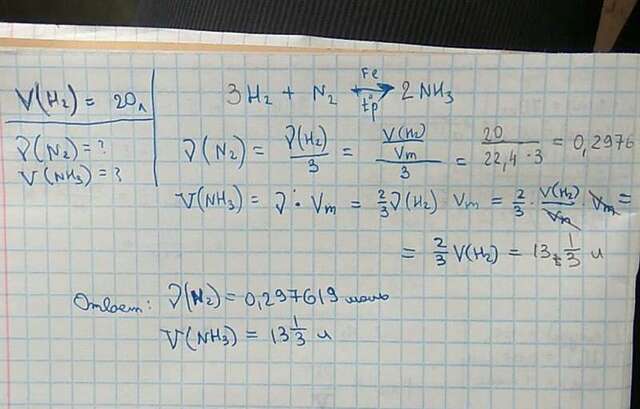 V(H₂) = 20л
3H₂ + N₂ ⇄ 2NH₃
Fe
t°p
ν(N₂) = ?
V(NH₃) = ?
ν(N₂) = ν(H₂)/3 = (V(H₂)/Vm)/3 = 20/(22,4·3) = 0,2976
V(NH₃) = ν·Vm = 2/3 ν(H₂) Vm = 2/3 · V(H₂)/Vm · Vm =
= 2/3 V(H₂) = 13 1/3 л
Ответ: ν(N₂) = 0,297619 моль
V(NH₃) = 13 1/3 л